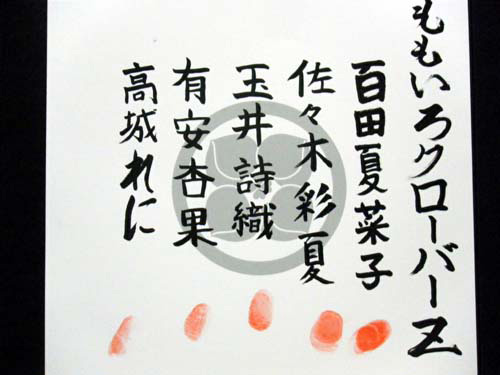 ももいろクローバーZ
百田夏菜子
佐々木彩夏
玉井詩織
有安杏果
高城れに